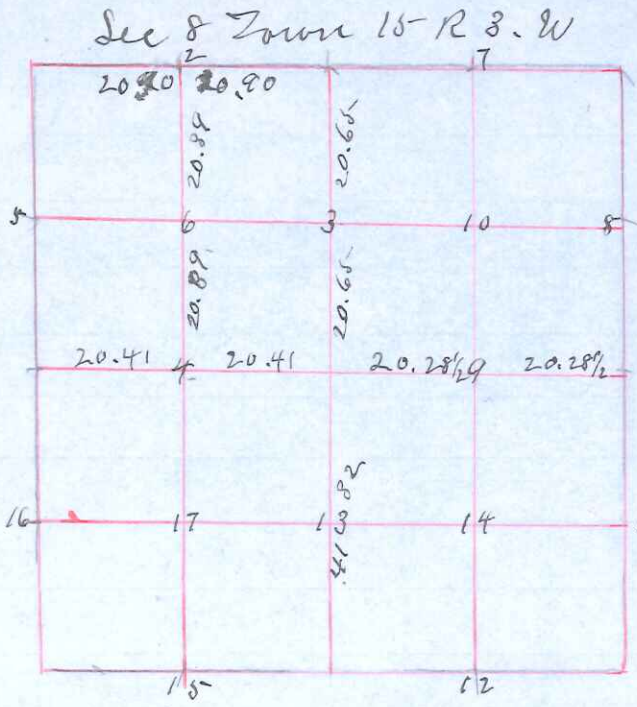 Sec 8 Town 15 R 3. W
2 7
20.90 20.90
20.89 20.65
5 6 3 10 8
20.89 20.65
20.41 4 20.41 20.28½ 9 20.28½
41.82
16 17 13 14
15 12